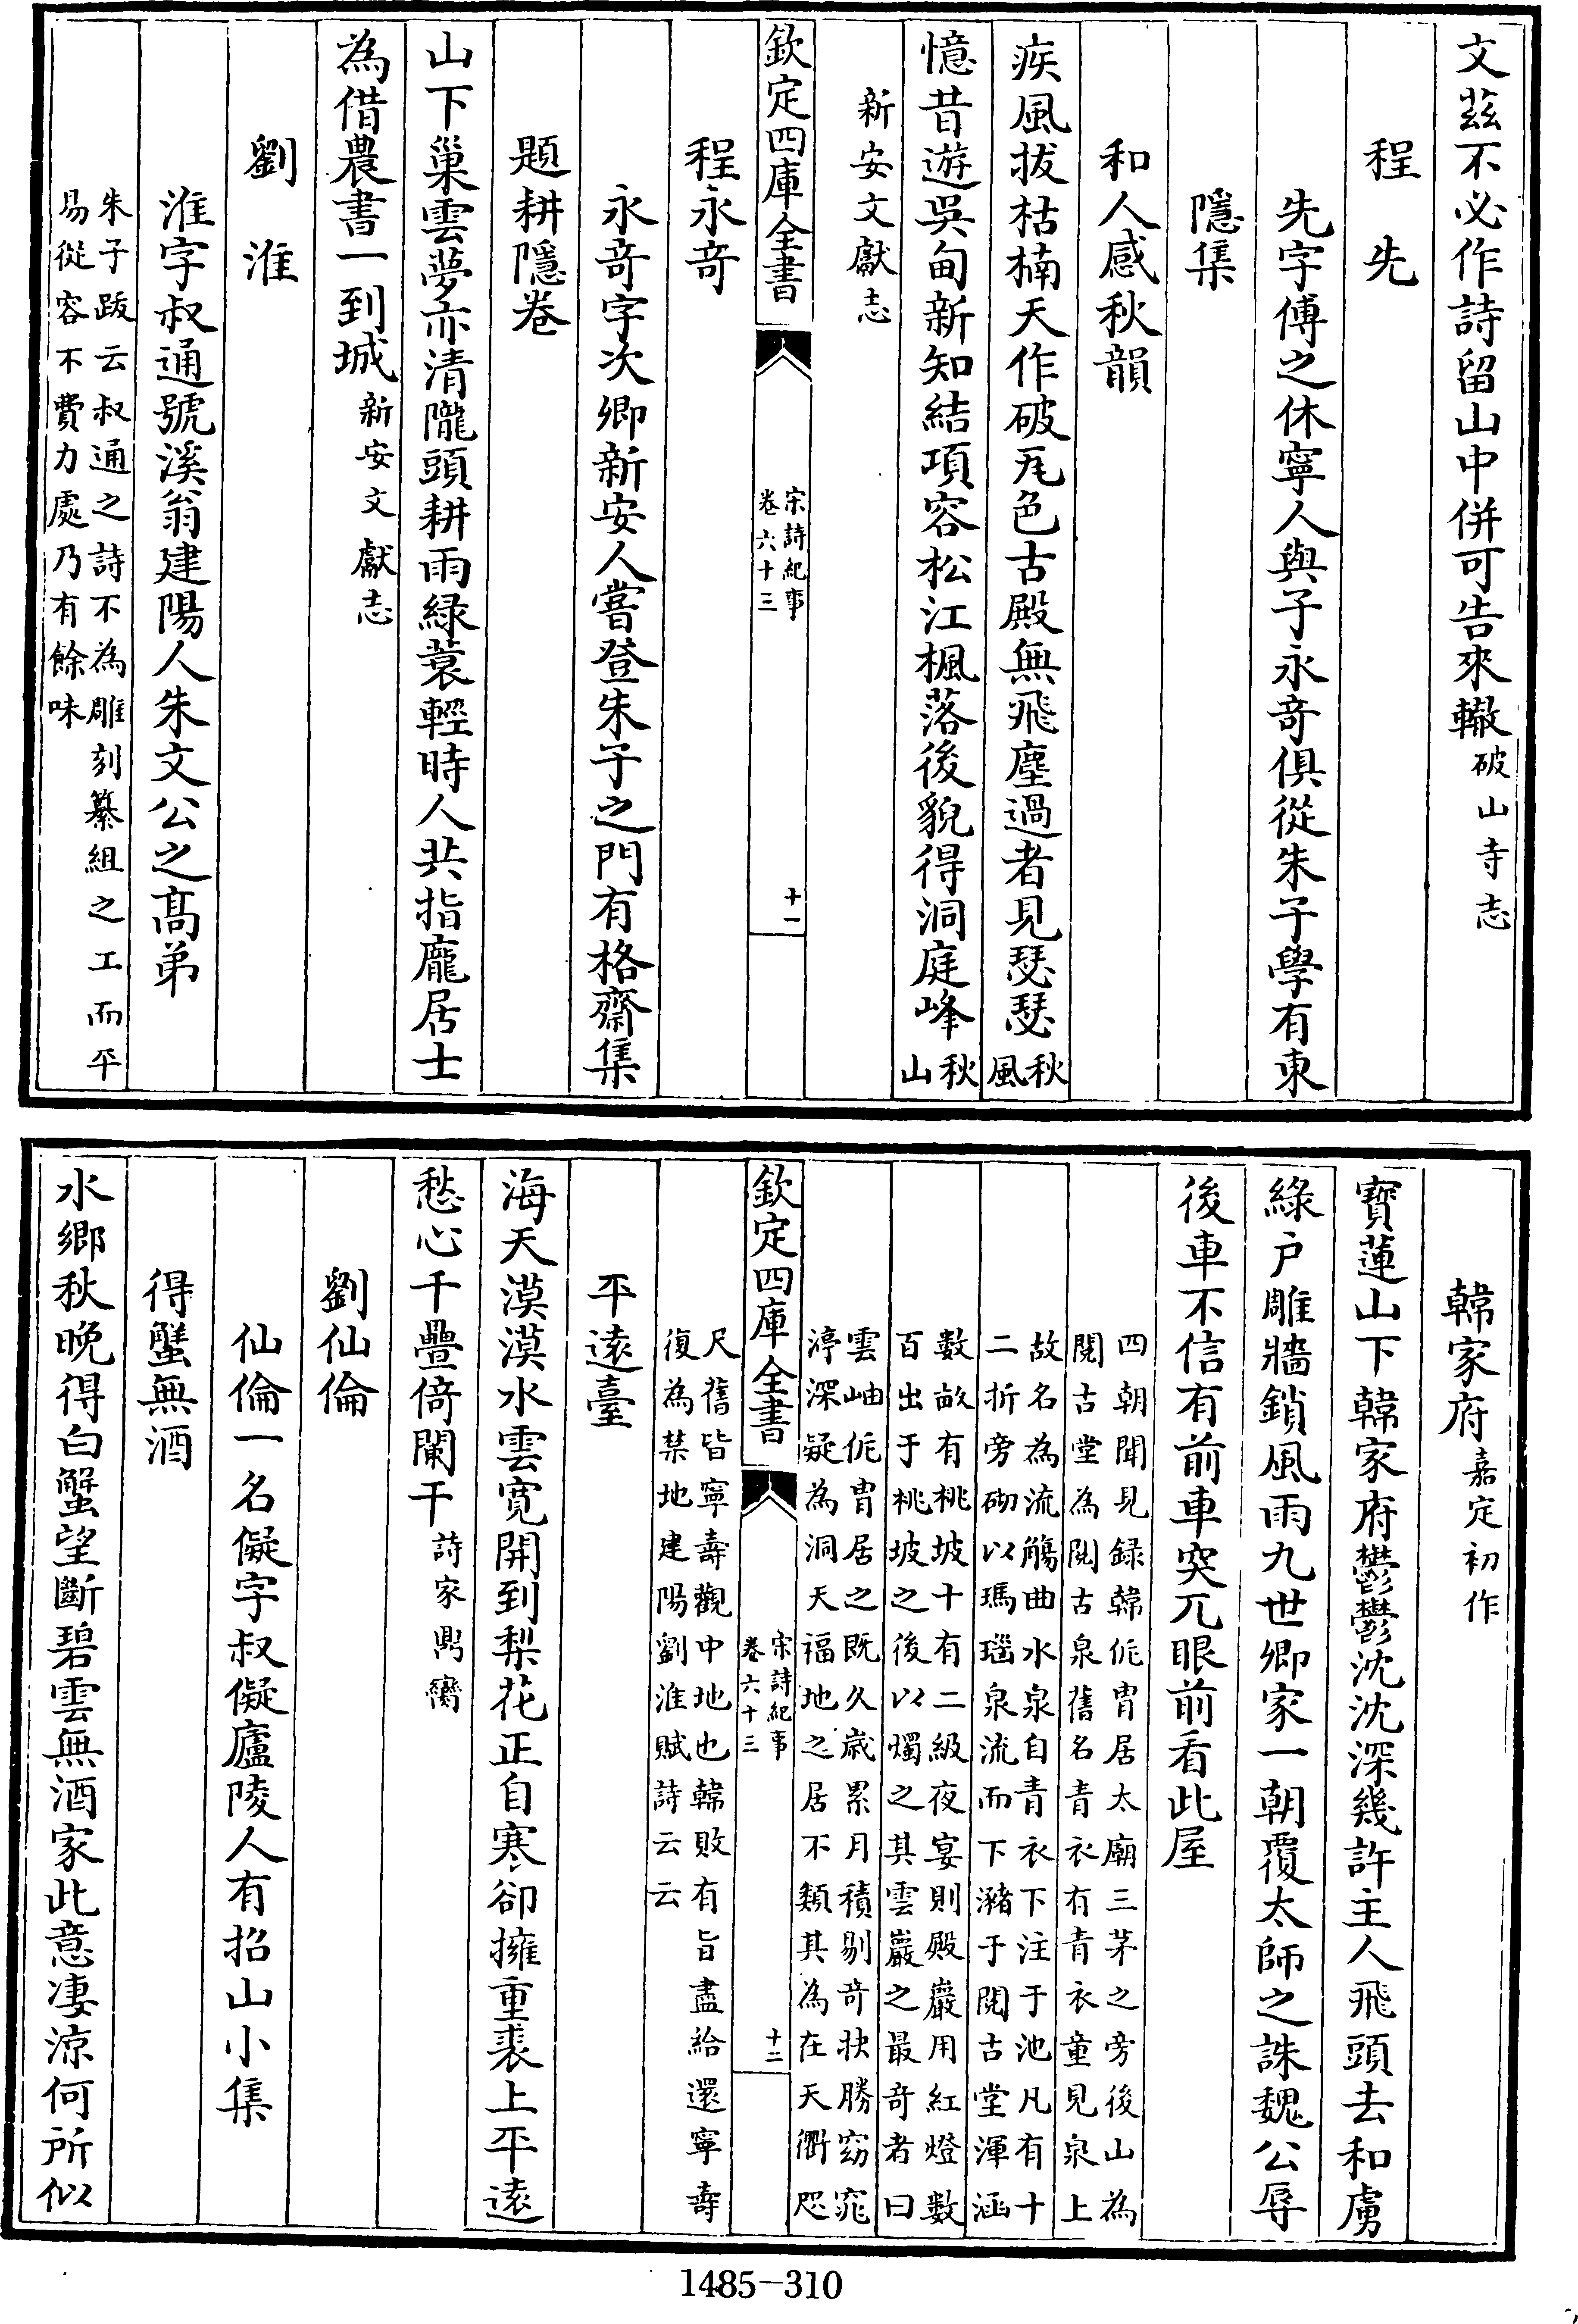 文茲不必作詩留山中併可告來轍破山寺志
程先
先字傅之休寧人與子永竒俱從朱子學有東
隱集
和人感秋韻
疾風拔枯楠天作破瓦色古殿無飛塵過者見瑟瑟秋風
憶昔遊吳甸新知結項容松江楓落後貌得洞庭峰秋山
新安文獻志
欽定四庫全書
宋詩紀事
卷六十三
十一
程永竒
永竒字次卿新安人嘗登朱子之門有格齋集
題耕隱卷
山下巢雲夢亦清隴頭耕雨緑蓑輕時人共指龐居士
為借農書一到城新安文獻志
劉淮
淮字叔通號溪翁建陽人朱文公之髙弟
朱子跋云叔通之詩不為雕刻纂組之工而平
易從容不費力處乃有餘味
韓家府嘉定初作
寳蓮山下韓家府鬱鬱沈沈深幾許主人飛頭去和虜
緑户雕牆鎖風雨九世卿家一朝覆太師之誅魏公辱
後車不信有前車突兀眼前看此屋
四朝聞見録韓侂胄居太廟三茅之旁後山為
閱古堂為閱古泉舊名青衣有青衣童見泉上
故名為流觴曲水泉自青衣下注于池凡有十
二折旁砌以瑪瑙泉流而下瀦于閱古堂渾涵
數畝有桃坡十有二級夜宴則殿巖用紅燈數
百出于桃坡之後以燭之其雲巖之最奇者曰
雲岫侂胄居之既久歳累月積剔奇抉勝窈窕
渟深疑為洞天福地之居不類其為在天衢咫
欽定四庫全書
宋詩紀事
卷六十三
十二
尺舊皆寧壽觀中地也韓敗有旨盡給還寧壽
復為禁地建陽劉淮賦詩云云
平逺臺
海天漠漠水雲寛開到梨花正自寒卻擁重裘上平逺
愁心千疊倚闌干詩家鼎臠
劉仙倫
仙倫一名儗字叔儗廬陵人有招山小集
得蟹無酒
水鄉秋晚得白蟹望斷碧雲無酒家此意凄涼何所似
1485-310